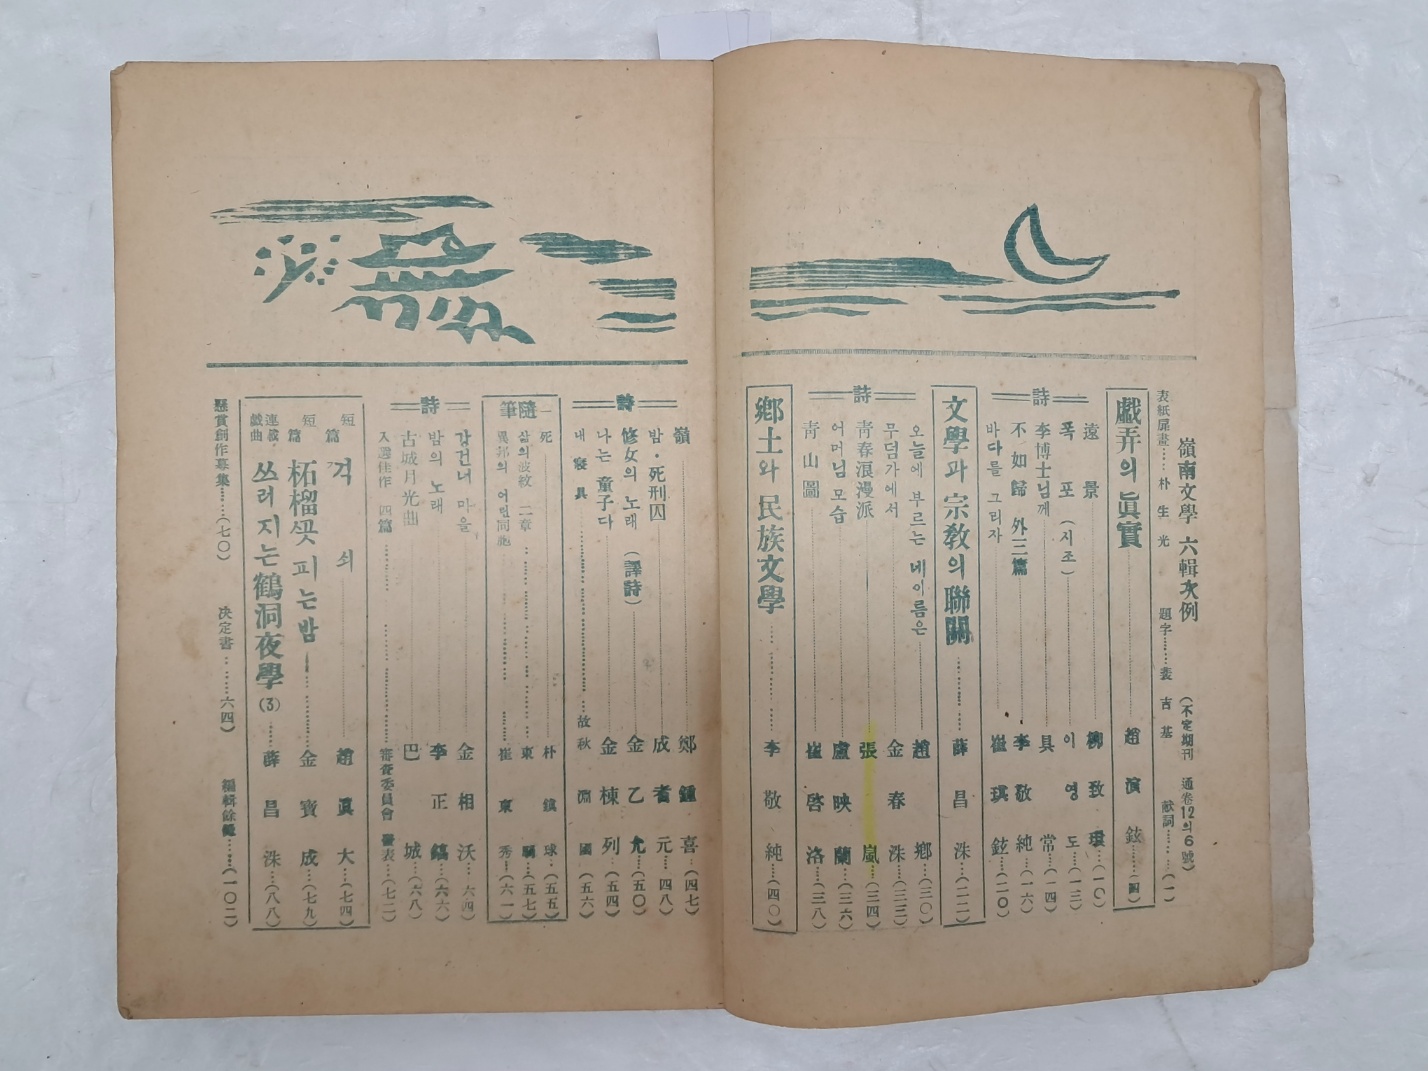 嶺南文學 六輯次例 (不定期刊 通卷12의6號)
表紙扉畫……朴生光 題字……裵吉基 献詞……(一)
戱弄의 眞實 趙演鉉……(四)
詩
遠景 柳致環…(一〇)
폭포 (시조) 이영도…(一三)
李博士님께 具常…(一四)
不如歸 外三篇 李敬純…(一六)
바다를 그리자 崔琪鉉…(二〇)
文學과 宗敎의 聯關 薛昌洙…(二二)
詩
오늘에 부르는 네이름은 趙鄕…(三〇)
무덤가에서 金春洙…(三三)
靑春浪漫派 張嵐…(三四)
어머님 모습 盧映蘭…(三六)
靑山圖 崔啓洛…(三八)
鄕土와 民族文學 李敬純…(四〇)
詩
嶺 鄭鍾喜…(四七)
밤・死刑囚 成耆元…四八)
修女의 노래 (譯詩) 金乙允…(五〇)
나는 童子다 金棟列…(五四)
내 寢具 故秋淵國(五六)
隨筆
死 朴鎭球…(五五)
삶의 波紋 二章 東騎…(五七)
異邦의 어린同胞 崔東秀…(六一)
詩
강건너 마을 金相沃…六四)
밤의 노래 李正鎬…(六六)
古城月光曲 巴城…(六八)
入選佳作 四篇 審査委員會 發表…(七二)
短篇 걱쇠 趙眞大…(七四)
短篇 柘榴꽃 피는 밤 金寶成…(七九)
連載戱曲 쓰러지는 鶴洞夜學(3) 薛昌洙…(八八)
懸賞創作募集……(七〇) 決定書……六四) 編輯餘錄……(一〇二)